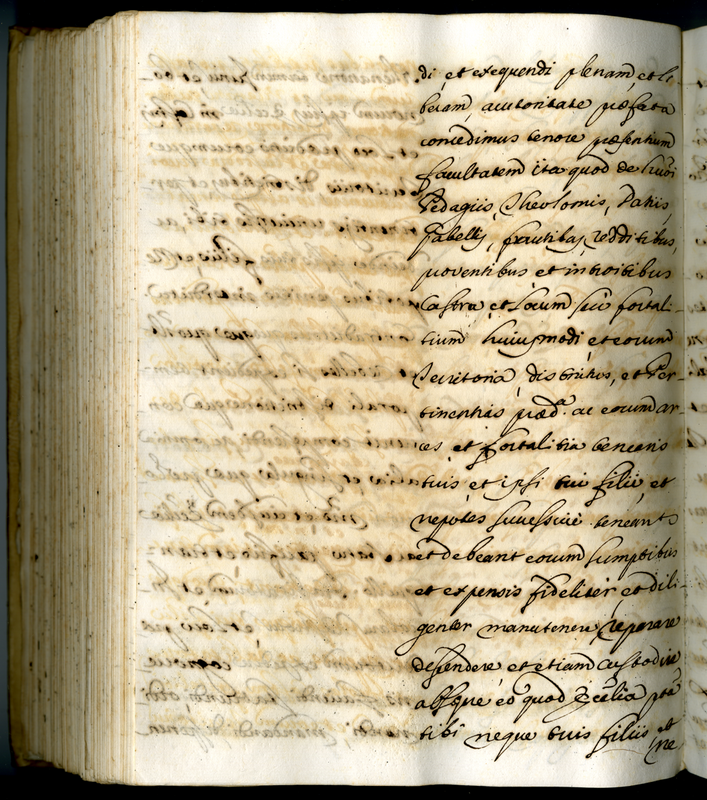 di, et exequendi plenam, et li
beram, auctoritate præfata
concedimus tenore præsentium
facultatem ita quod de huõi
Pedagiis, Theolomis, Datiis,
Gabellis, fructibus, redditibus,
proventibus et introitibus
Castra et Locum seu fortali-
tium huiusmodi, et eorum
Territoria, districtus, et Per-
tinentias præd.ª ac eorum ar-
ces, et fortalitia tenearis
tuis, et ipsi tui filii, et
nepotes successive teneant
et debeant eorum sumptibus
et expensis fideliter et dili-
genter manutenere reparare
defendere et etiam custodire
absque eo quod Ecclia ptã
tibi neque tuis filiis et
ne